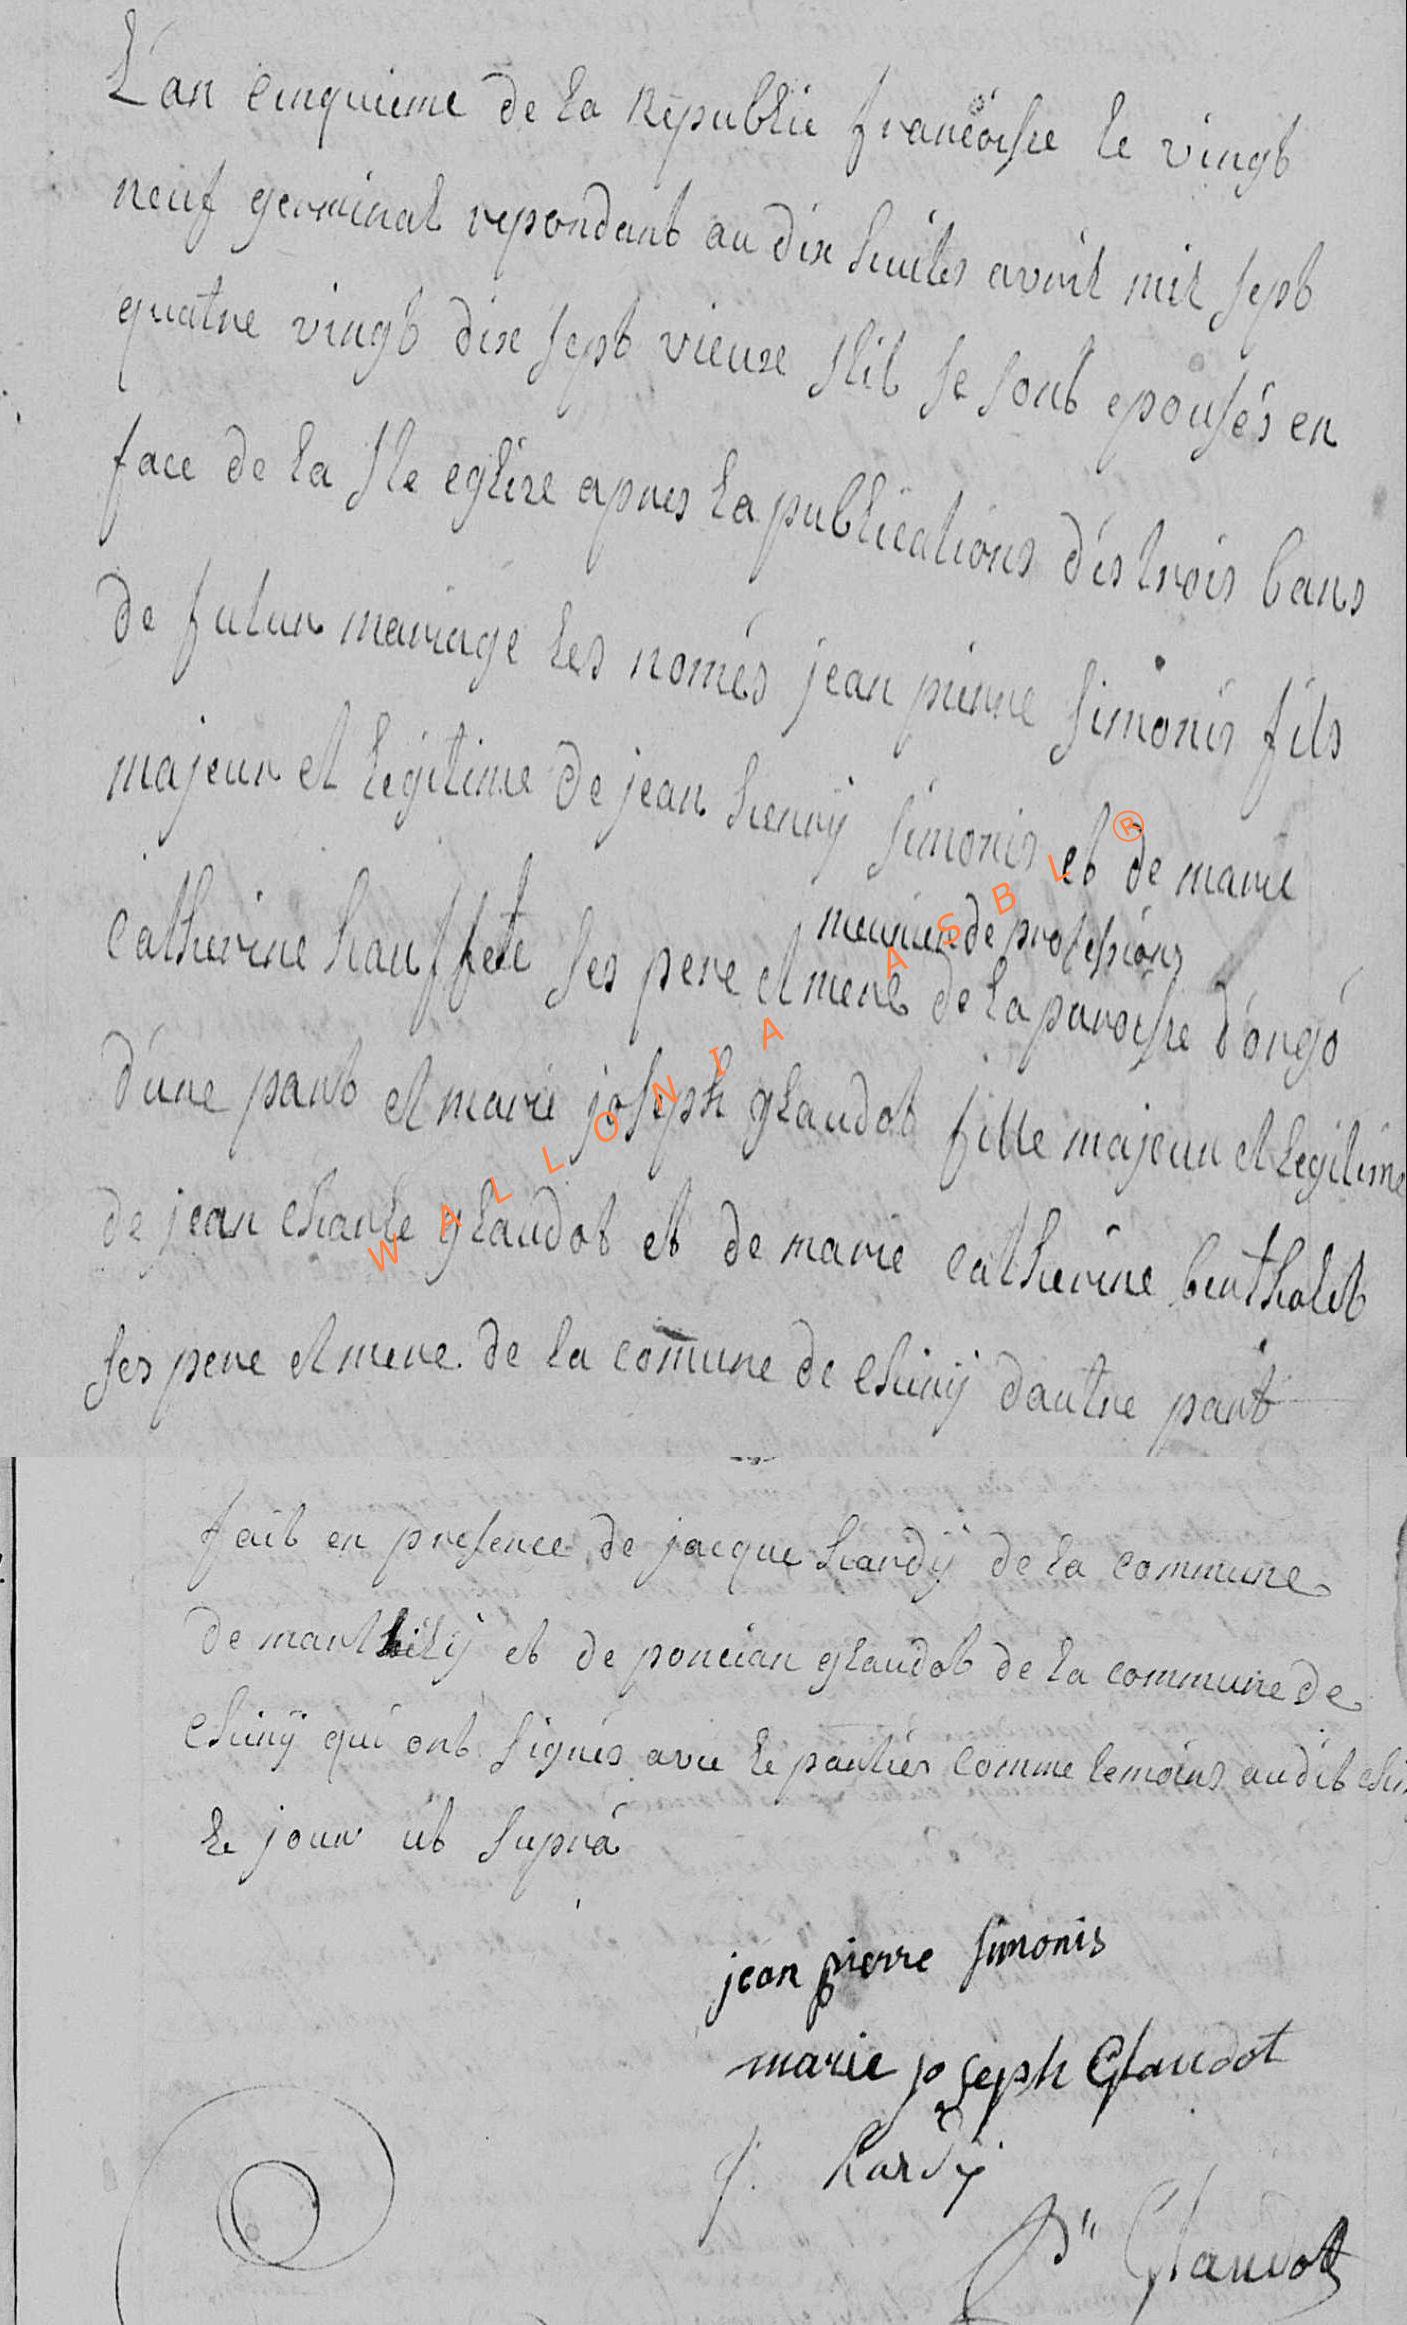 L'an cinquieme de la Republic francoisse le vingt
neuf germinal repondant au dix huites avril mil sept
quatre vingt dix sept vieux stil se sont epousés en
face de la Ste eglise apres la publications dés trois bans
de futur mariage les només jean pierre simonis fils
majeur et legitime de jean henrÿ simonis et de marie
meunier de professions
catherine hauffete ses pere et mere de la paroisse d'orgó
d'une part et marie joseph glaudot fille majeur et legitime
de jean charle glaudot et de marie catherine bertholet
ses pere et mere de la comune de chinÿ d'autre part
fait en presence de jacque hardÿ de la commune
de marthilÿ et de poncian glaudot de la commune de
chinÿ qui ont signés avec le parties comme temoins audit
le jour ut suprá
jean pierre simonis
marie joseph Glaudot
j. hardÿ
Glaudot
WALLONIA ASBL ®